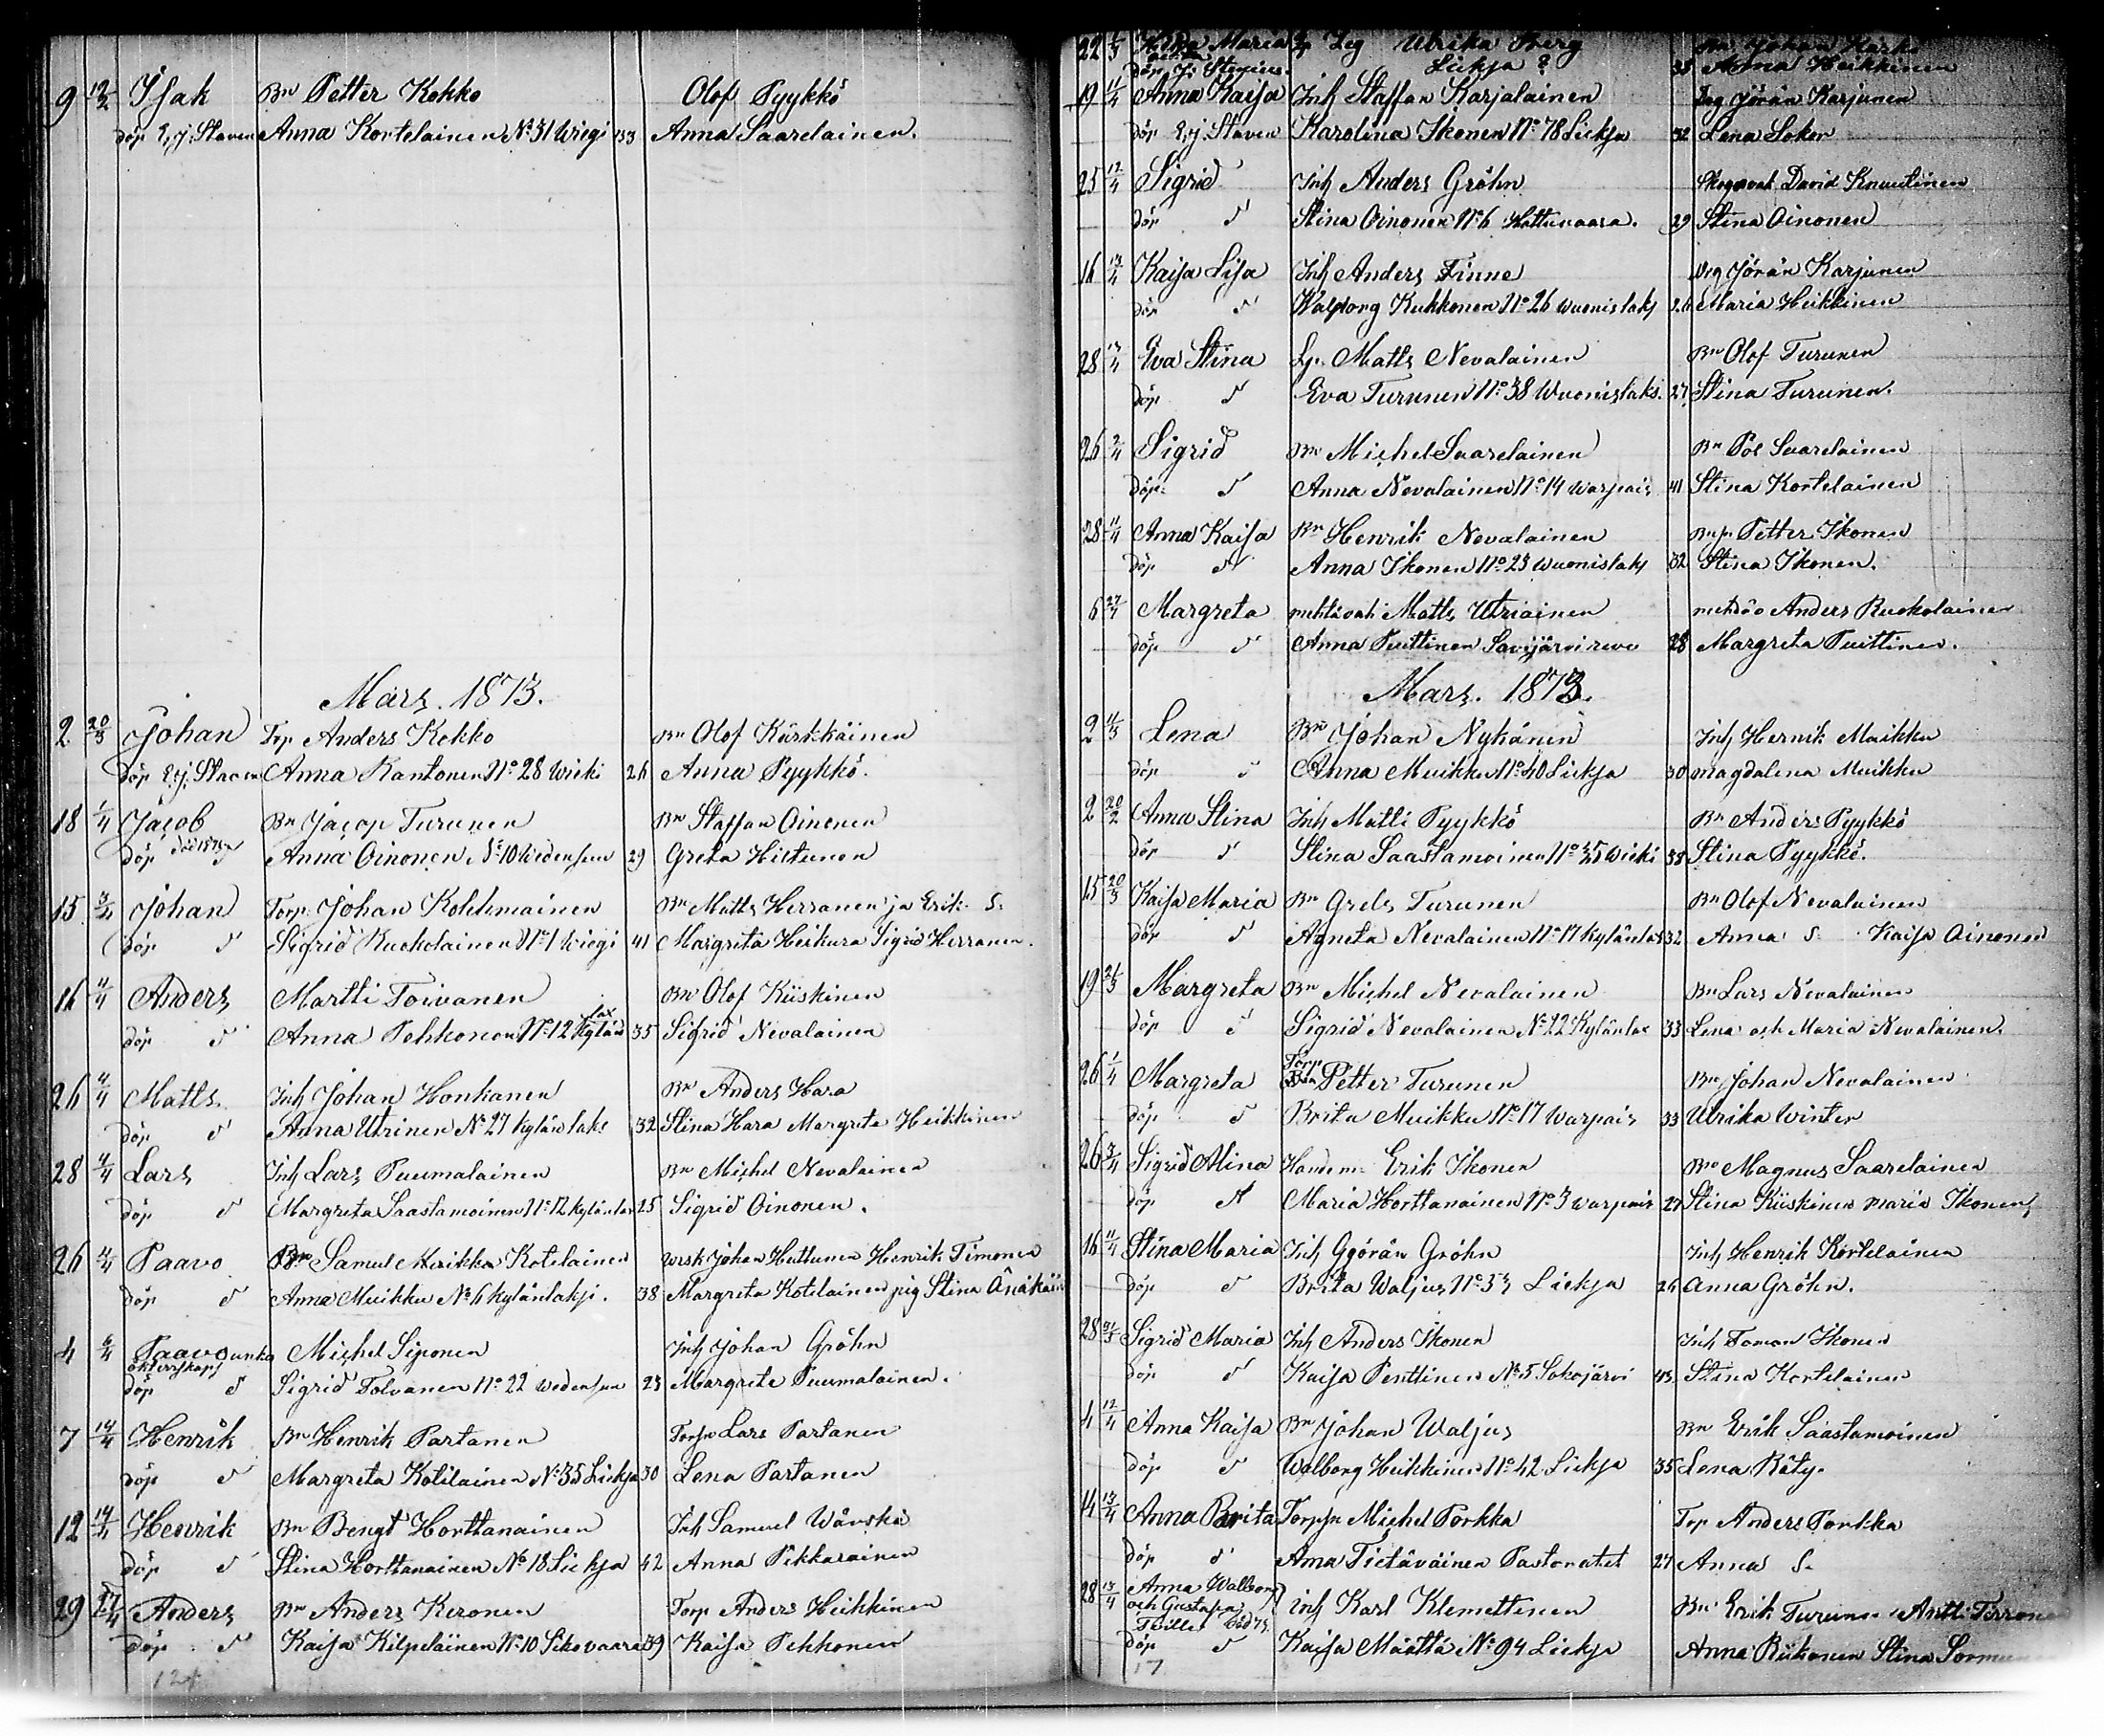 9 12/2 Isak Bn Petter Kokko Olof Pyykkö
döp E.J. Staven Anna Kortelainen No 31 Wiegi 33 Anna Saarelainen.
Mars. 1873.
2 20/3 Johan Torp Anders Kokko Bn Olof Kärkkäinen
döp E.J. Staven Anna Kantonen No 28 Wieki 26 Anna Pyykkö.
18 1/4 Jacob Bn Jacop Turunen Bn Staffan Oinonen
döp Anna Oinonen No 10 29 Greta Hiltunen
15 3/4 Johan Torp. Johan Kohlemainen Bn Matts Herranen ja Erik S.
döp d Sigrid Ruokolainen No 1 Wiegi 41 Margreta Heikura Sigrid Herranen.
16 4/4 Anders Martti Toivanen Bn Olof Kiiskinen
lax
döp d Anna Pehkonen No 12 Kylän 35 Sigrid Nevalainen
26 4/4 Matts. Inh Johan Honkanen Bn Anders Hara
döp d Anna Utrinen No 27 Kylänlaks 32 Stina Hara Margreta Heikkinen
28 4/4 Lars Inh Lars Puumalainen Bn Michel Nevalainen
döp d Margreta Saastamoinen No 12 Kylänlax 25 Sigrid Oinonen.
26 4/4 Paavo Bn Samuel Kotelainen Johan Huttunen Henrik Timonen
döp d Anna Muikku No 6 Kylänlaksi. 38 Margreta Kotelainen pig Stina
4 6/4 Paavo Michel Siponen Inh Johan Gröhn
döp d Sigrid Tolvanen No 22 23 Margreta Puumalainen.
7 14/4 Henrik Bn Henrik Partanen Lars Partanen
döp d Margreta Kotilainen No 35 Lieksa 30 Lena Partanen
12 14/4 Henrik Bn Bengt Horttanainen Inh Samuel
döp d Stina Horttanainen No 18 Lieksa 42 Anna Pikkarainen
29 17/4 Anders Bn Anders Keronen Torp Anders Heikkinen
döp d Kaisa Kilpeläinen No 10 39 Kaisa Pehkonen
124
22 Maria Ulrika Berg Bn Johan
Lieksa ? 35 Anna Heikkinen
19 11/4 Anna Kaisa Inh Staffan Karjalainen Jörän Karjunen
döp E.J. Staven Karolina Ikonen No 78 Lieksa 32 Lena Soker
25 12/4 Sigrid Inh Anders Gröhn David Knuutinen
döp d Stina Oinonen No 6 Hattuvaara. 29 Stina Oinonen
16 13/4 Kaisa Lisa Inh Anders Finne Jörän Karjunen
döp d Walborg Kukkonen No 26 Wuonislaks 26 Maria Heikkinen
28 13/4 Eva Stina Matts Nevalainen Bn Olof Turunen
döp d Eva Turunen No 38 Wuonislaks. 27 Stina Turunen.
26 2/4 Sigrid Bn Michel Saarelainen Bn Pål Saarelainen
döp. d Anna Nevalainen No 14 Warpais 41 Stina Kortelainen
28 11/4 Anna Kaisa Bn Henrik Nevalainen Petter Ikonen
döp d Anna Ikonen No 23 Wuonislaks 32 Stina Ikonen.
6 27/4 Margreta Matts Utriainen Anders Ruokolainen
döp d Anna Puittinen 28 Margreta Puittinen.
Mars. 1873.
2 11/3 Lena Bn Johan Nykänen Inh Hernik Muikku
döp d Anna Muikku No 40 Lieksa 30 magdalena Muikku
2 20/2 Anna Stina Inh Matti Pyykkö Bn Anders Pyykkö
döp d Stina Saastamoinen No 35 Wieki 38 Stina Pyykkö.
15 20/3 Kaisa Maria Bn Grels Turunen Bn Olof Nevalainen
döp d Agneta Nevalainen No 17 Kylänlax 32 Anna S. Kaisa Oinonen
19 26/3 Margreta Bn Michel Nevalainen Bn Lars Nevalainen
döp d Sigrid Nevalainen No 22 Kylänlax 33 Lena och Maria Nevalainen.
26 1/4 Margreta Torp Petter Turunen Bn Johan Nevalainen
döp d Brita Muikku No 17 Warpais 33 Ulrika Winter
26 3/4 Sigrid Alina Erik Ikonen Bn Magnus Saarelainen
döp d Maria Horttanainen No 3 Warpais 27 Stina Kiiskinen maria Ikonen
16 11/4 Stina Maria Inh Gjörän Gröhn Inh Henrik Kortelainen
döp d Brita Waljus No 53 Lieksa 26 Anna Gröhn.
28 31/3 Sigrid Maria Inh Anders Ikonen Inh Toman Ikonen
döp d Kaisa Penttinen No 5 Sokojärvi 43 Stina Kortelainen
4 12/4 Anna Kaisa Bn Johan Waljus Bn Erik Saastamoinen
döp d Walborg Heikkinen No 42 Lieksa 35 Lena Räty.
14 13/4 Anna Brita Michel Porkka Torp Anders Porkka
döp d Anna Tietäväinen Pastoratet 27 Anna S.
28 13/4 Anna Walborg
och Gustava inh Karl Klemettinen Bn Erik Turunen Antti
döp d Kaisa Määttä No 94 Lieksa Anna Riikonen Stina
17